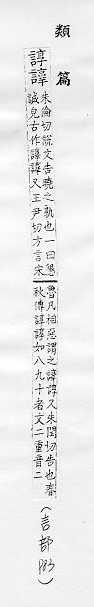 類篇
諄諄
朱倫切說文告曉之孰也一曰懇
誠皃古作諄諄又主尹切方言宋
魯凡相惡謂之諄諄又朱閏切告也春
秋傳諄諄如八九十者文二重音二
(言部 83)